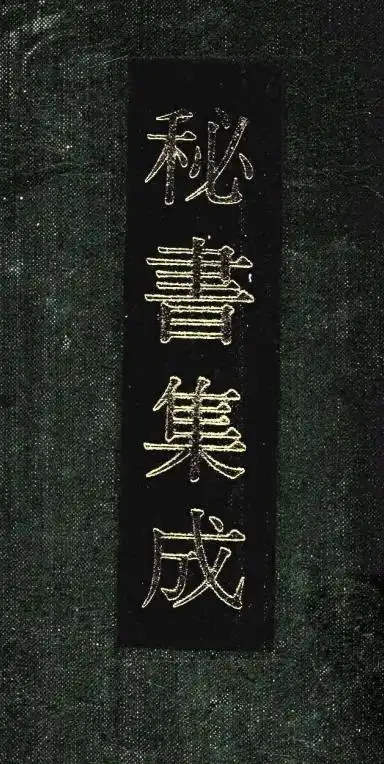 秘書集成